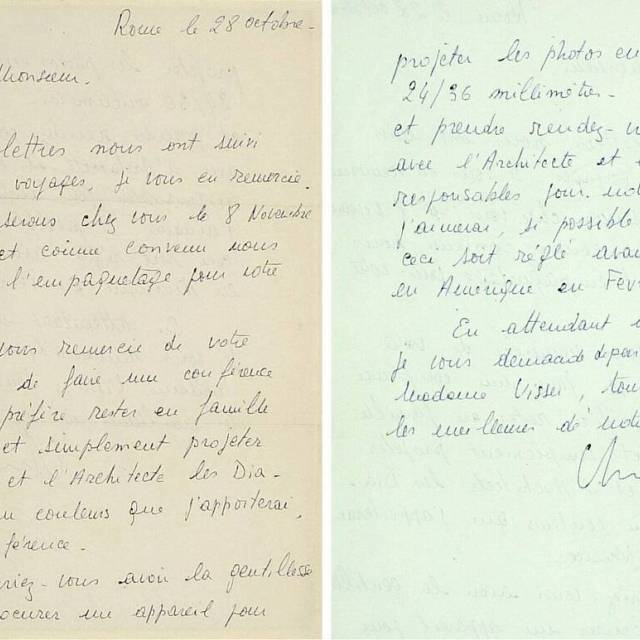 Rome le 28 octobre -
Monsieur.
lettres nous ont suivi
voyages, je vous en remercie.
serons chez vous le 8 Novembre
et comme convenu nous
l'empaquetage pour votre
vous remercie de votre
de faire une conférence
préfère rester en famille
et simplement projeter
et l'Architecte les Dia-
en couleurs que j'apporterai,
férence.
riez-vous avoir la gentillesse
rocurer un appareil pour
projeter les photos en
24/36 millimètres -
et prendre rendez-v
avec l'Architecte et
responsables pour
j'aimerai, si possible
ceci soit réglé avan
en Amérique en Fev
En attendant
je vous demande de
Madame Visser, tou
les meilleures de
Ch